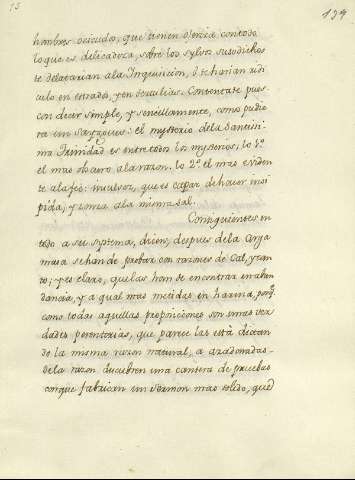 15
139
hombres ociosudos, que tienen ojeriza con todo
lo que es delicadeza, sobre los sylvos susodichos
te delatarian ala Inquisicion, ò te harian ridi
culo en estrado, y en
Contentate pues
con decir simple, y sencillamente, como pudie
ra un
: el mysterio dela Santisi
ma Trinidad es entre todos los mysterios, lo 1º
el mas obscuro ala razon, lo 2º el mas eviden
te ala feè:
que es capaz de hacer insi
pida, y sonsa ala misma sal.
Consiguientes en
todo a su systema, dicen, despues dela arga
masa se han de probar con razones de Cal, y can
to; y es claro, que las han de encontrar en abun
dancia, y a qual mas metidas en harina, porq.
como todas aquellas proposiciones son unas ver
dades perentorias, que parece las està dictan
do la misma razon natural, a
dela razon descubren una cantera de pruebas
conque fabrican un Sermon mas solido, que el